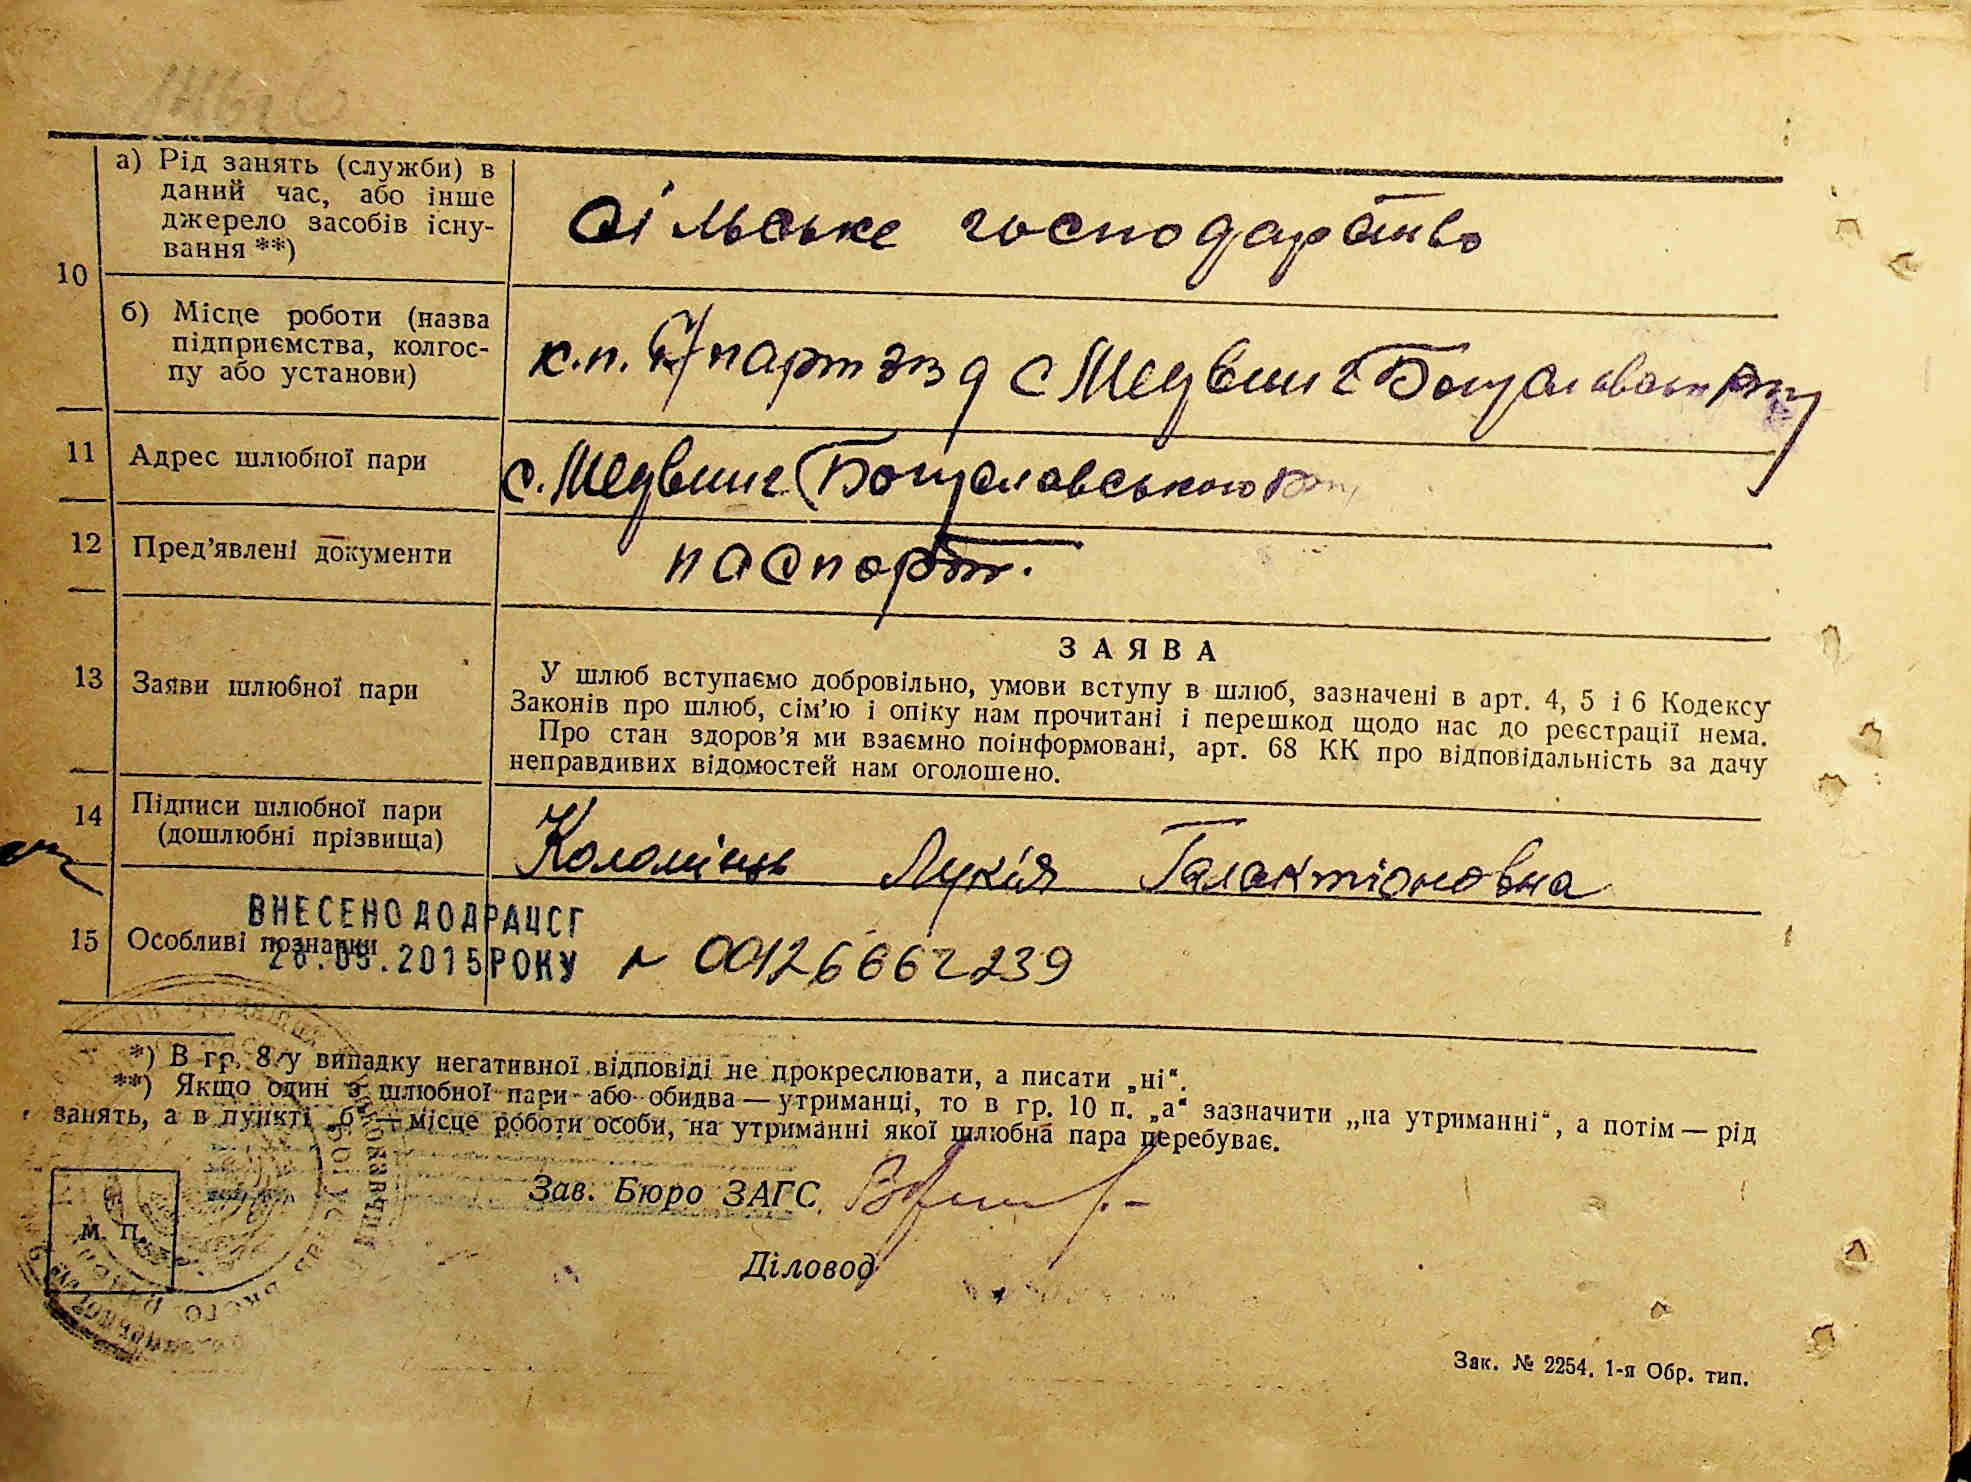 а) Рід занять (служби) в
даний час, або інше
джерело засобів існу-
вання **)
сільське господарство
10
б) Місце роботи (назва
підприємства, колгос-
пу або установи)
к.п. партзізд с Медвин Богуславського
11 Адрес шлюбної пари с. Медвин Богуславського
12 Пред’явлені документи паспорт.
13 Заяви шлюбної пари
ЗАЯВА
У шлюб вступаємо добровільно, умови вступу в шлюб, зазначені в арт. 4, 5 і 6 Кодексу
Законів про шлюб, сім’ю і опіку нам прочитані і перешкод щодо нас до реєстрації нема.
Про стан здоров’я ми взаємно поінформовані, арт. 68 КК про відповідальність за дачу
неправдивих відомостей нам оголошено.
14 Підписи шлюбної пари
(дошлюбні прізвища)
Коломієць Лукія Галактіоновна
ВНЕСЕНО ДО ДРАЦСГ
15 Особливі позначки
.05.2015 РОКУ № 00126662239
*) В гр. 8 у випадку негативної відповіді не прокреслювати, а писати „ні“.
**) Якщо один з шлюбної пари або обидва — утриманці, то в гр. 10 п. „а“ зазначити „на утриманні“, а потім — рід
занять, а в пункті „б“ — місце роботи особи, на утриманні якої шлюбна пара перебуває.
Зав. Бюро ЗАГС
М. П.
Діловод
Зак. № 2254. 1-я Обр. тип.